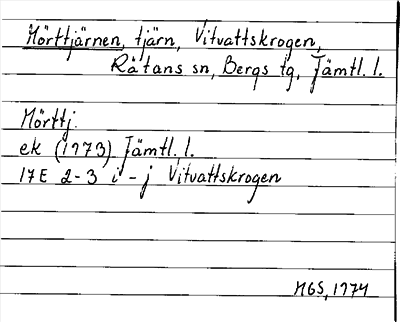 Mörttjärnen, tjärn, Vitvattskrogen,
Rätans sn, Bergs tg, Jämtl. l.
Mörttj.
ek (1973) Jämtl. l.
17E 2-3 i - j Vitvattskrogen
MGS, 1974